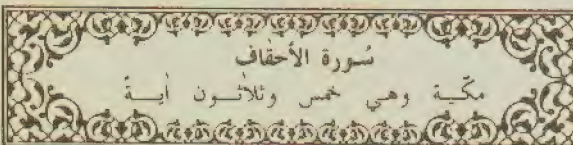 سُورة الأحقاف
مكّية وهي خمس وثلاثــون أيــةً